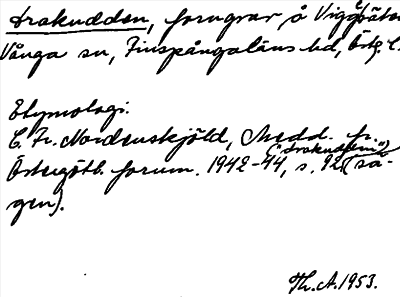 Drakudden, forngrav å Viggösätter
Vånga sn, Finspångaläns hd, Östg. l.
Etymologi:
C. Fr. Nordenskjöld, Medd. fr.
Östergötl. fornm. 1942-44, s. 92 ("Drakudden") (så-
gen).
Th. A. 1953.